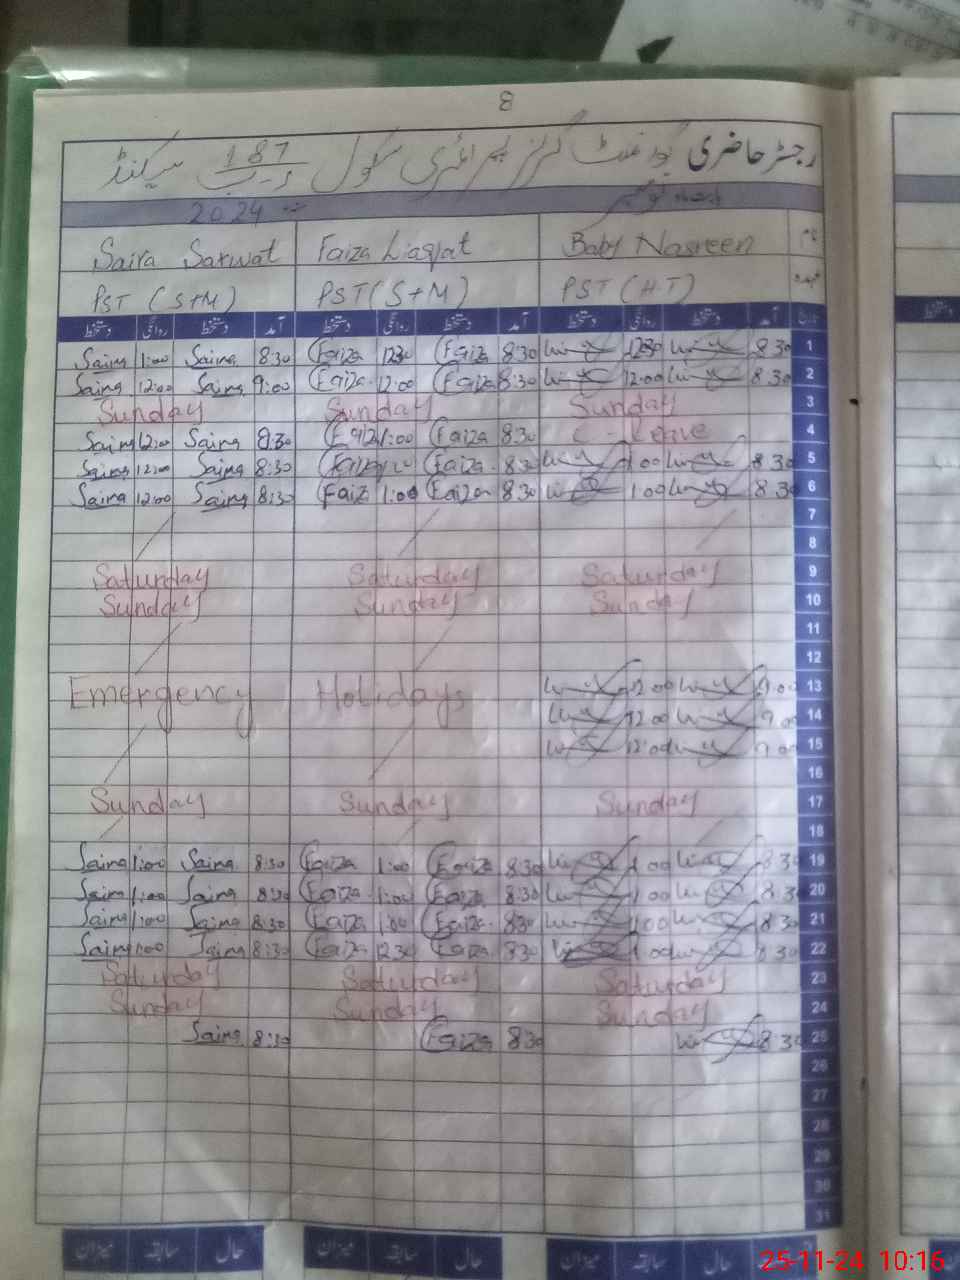 8
رجسٹر حاضری گورنمنٹ گرلز پرائمری سکول 187 سیکنڈ
بابت ماہ نومبر 2024
نام Baby Nasreen Faiza Liaqat Saira Sarwat
عہدہ PST (H.T) PST (S+M) PST (S+M)
تاریخ آمد دستخط روانگی دستخط آمد دستخط روانگی دستخط آمد دستخط روانگی دستخط
Saira 1:00 Saira 8:30 Faiza 1230 Faiza 8:30 1230 8 30 1
Saira 12:00 Saira 9:00 Faiza 12:00 Faiza 8:30 12:00 8 30 2
Sunday Sunday Sunday 3
Saira 12:00 Saira 8:30 Faiza 1:00 Faiza 8:30 C-Leave 4
Saira 12:00 Saira 8:30 Faiza Faiza 8:30 1 00 8 30 5
Saira 12:00 Saira 8:30 Faiza 1:00 Faiza 8:30 1:00 8 30 6
7
8
Saturday Saturday Saturday 9
Sunday Sunday Sunday 10
11
12
Emergency Holidays 12 00 9:00 13
12 00 9 00 14
12:00 9 00 15
16
Sunday Sunday Sunday 17
18
Saira 1:00 Saira 8:30 Faiza 1:00 Faiza 8:30 1 00 8 30 19
Saira 1:00 Saira 8:30 Faiza 1:00 Faiza 8:30 1 00 8 30 20
Saira 1:00 Saira 8:30 Faiza 1:00 Faiza 8:30 1 00 8 30 21
Saira 1:00 Saira 8:30 Faiza 12 30 Faiza 8:30 1 00 8 30 22
Saturday Saturday Saturday 23
Sunday Sunday Sunday 24
Saira 8:30 Faiza 8 30 8 30 25
26
27
28
29
30
31
حال سابقہ میزان حال سابقہ میزان حال سابقہ میزان
25-11-24 10:16